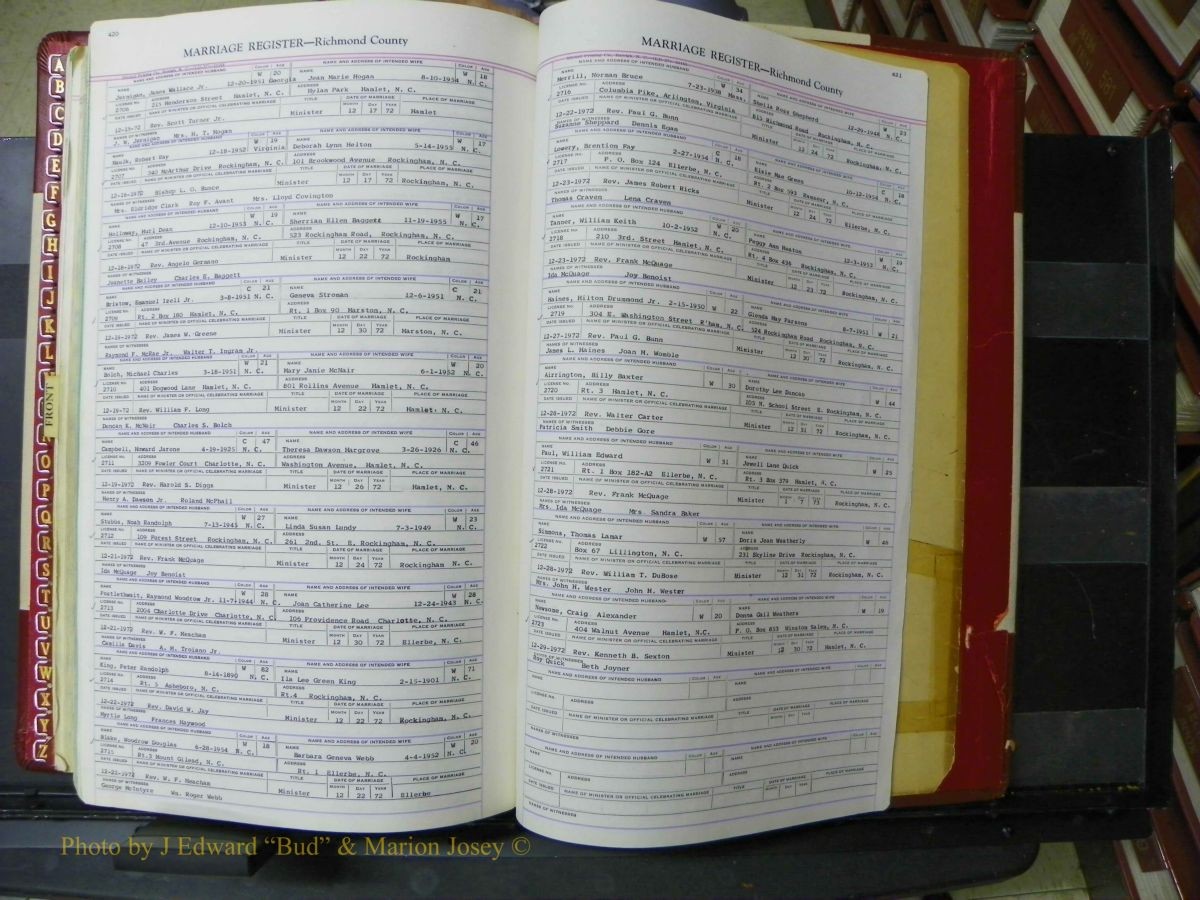 420
MARRIAGE REGISTER—Richmond County
Jernigan, James Wallace Jr. 12-20-1951 Georgia W 20 Joan Marie Hogan 8-10-1954 N. C. W 18
2706 215 Henderson Street Hamlet, N. C. Hylan Park Hamlet, N. C.
12-15-72 Rev. Scott Turner Jr. Minister 12 17 72 Hamlet
J. W. Jernigan Mrs. H. T. Hogan
Robert Ray 12-18-1952 Virginia W 19 Deborah Lynn Helton 5-14-1955 N. C. W 17
2707 340 McArthur Drive Rockingham, N. C. 101 Brookwood Avenue Rockingham, N. C.
12-16-1972 Bishop L. O. Bunce Minister 12 17 72 Rockingham, N. C.
Mrs. Eldridge Clark Roy F. Avant Mrs. Lloyd Covington
Holloway, Huti Dean 12-10-1953 N. C. W 19 Sherrian Ellen Baggett 11-19-1955 N. C. W 17
2708 47 3rd.Avenue Rockingham, N. C. 523 Rockingham Road, Rockingham, N. C.
12-18-1972 Rev. Angelo Germano Minister 12 22 72 Rockingham
Jeanette Bailey Charles E. Baggett
Bristow, Emanuel Izell Jr. 3-8-1951 N. C. C 21 Geneva Stroman 12-6-1951 N. C. C 21
2709 Rt. 2 Box 180 Hamlet, N. C. Rt. 1 Box 90 Marston, N. C.
12-19-1972 Rev. James W. Greene Minister 12 30 72 Marston, N. C.
Raymond F. McRae Jr. Walter T. Ingram Jr.
Bolch, Michael Charles 3-18-1951 N. C. W 21 Mary Janie McNair 6-1-1952 N. C. W 20
2710 401 Dogwood Lane Hamlet, N. C. 801 Rollins Avenue Hamlet, N. C.
12-19-72 Rev. William F. Long Minister 12 22 72 Hamlet, N. C.
Duncan E. McNair Charles S. Bolch
Campbell, Howard Jarone 4-19-1925 N. C. C 47 Theresa Dawson Hargrove 3-26-1926 N. C. C 46
2711 3209 Fowler Court Charlotte, N. C. Washington Avenue, Hamlet, N. C.
12-19-1972 Rev. Harold S. Diggs Minister 12 26 72 Hamlet, N. C.
Henry A. Dawson Jr. Roland McPhail
Stubbs, Noah Randolph 7-13-1945 N. C. W 27 Linda Susan Lundy 7-3-1949 N. C. W 23
2712 109 Forest Street Rockingham, N. C. 261 2nd. St. E. Rockingham, N. C.
12-21-1972 Rev. Frank McQuage Minister 12 24 72 Rockingham N. C.
Ida McQuage Joy Benoist
Postlethwait, Raymond Woodrow Jr. 11-7-1944 N. C. W 28 Joan Catherine Lee 12-24-1943 N. C. W 28
2713 2004 Charlotte Drive Charlotte, N. C. 106 Providence Road Charlotte, N. C.
12-21-1972 Rev. W. F. Meacham Minister 12 30 72 Ellerbe, N. C.
Camille Davis A. M. Troiano Jr.
King, Peter Randolph 8-14-1890 N. C. W 82 Ila Lee Green King 2-15-1901 N. C. W 71
2714 Rt. 5 Asheboro, N. C. Rt.4 Rockingham, N. C.
12-22-1972 Rev. David W. Jay Minister 12 22 72 Rockingham, N. C.
Myrtle Long Frances Haywood
Blake, Woodrow Douglas 6-28-1954 N. C. W 18 Barbara Geneva Webb 4-4-1952 N. C. W 20
2715 Rt.3 Mount Gilead, N. C. Rt. 1 Ellerbe, N. C.
12-22-1972 Rev. W. F. Meachan Minister 12 22 72 Ellerbe
George McIntyre Wm. Roger Webb
421
MARRIAGE REGISTER—Richmond County
Merrill, Norman Bruce 7-23-1938 Mass. W 34 Sheila Ross Shepherd 12-29-1948 N. C. W 23
2716 Columbia Pike, Arlington, Virginia 815 Richmond Road Rockingham, N. C.
12-22-1972 Rev. Paul G. Bunn Minister 12 24 72 Rockingham, N. C.
Suzanne Sheppard Dennis Egan
Lowery, Brention Fay 2-27-1954 N. C. C 18 Elsie Mae Green 10-12-1954 N. C. C 18
2717 P. O. Box 124 Ellerbe, N. C. Rt. 2 Box 593 Ramseur, N. C.
12-23-1972 Rev. James Robert Ricks Minister 12 24 72 Ellerbe, N. C.
Thomas Craven Lena Craven
Tanner, William Keith 10-2-1952 N. C. W 20 Peggy Ann Heaton 12-3-1953 N. C. W 19
2718 210 3rd. Street Hamlet, N. C. Rt. 4 Box 496 Rockingham, N. C.
12-23-1972 Rev. Frank McQuage Minister 12 23 72 Rockingham, N. C.
Ida McQuage Joy Benoist
Haines, Hilton Drummond Jr. 2-15-1950 W 22 Glenda May Parsons 8-7-1951 W 21
2719 304 E. Washington Street R'ham, N. C. 524 Rockingham Road Rockingham, N. C.
12-27-1972 Rev. Paul G. Bunn Minister 12 30 72 Rockingham, N. C.
James L. Haines Joan H. Womble
Airrington, Billy Baxter W 30 Dorothy Lee Duncan W 44
2720 Rt. 3 Hamlet, N. C. 105 N. School Street E. Rockingham, N. C.
12-28-1972 Rev. Walter Carter Minister 12 31 72 Rockingham, N. C.
Patricia Smith Debbie Gore
Paul, William Edward W 31 Jewell Lane Quick W 25
2721 Rt. 1 Box 182-A2 Ellerbe, N. C. Rt. 3 Box 379 Hamlet, N. C.
12-28-1972 Rev. Frank McQuage Minister 7 73 Rockingham, N. C.
Mrs. Ida McQuage Mrs. Sandra Baker
Simmons, Thomas Lamar W 57 Doris Jean Weatherly W 46
2722 Box 67 Lillington, N. C. 231 Skyline Drive Rockingham, N. C.
12-28-1972 Rev. William T. DuBose Minister 12 31 72 Rockingham, N. C.
Mrs. John H. Wester John H. Wester
Newsome, Craig Alexander W 20 Donna Gail Weathers W 19
2723 404 Walnut Avenue Hamlet, N.C. P. O. Box 853 Winston Salem, N. C.
12-29-1972 Rev. Kenneth B. Sexton Minister 12 30 72 Hamlet, N. C.
Roy Quick Beth Joyner
A
B
C
D
E
F
G
H
I
J
K
L
FRONT
O
P
Q
R
S
T
U
V
W
X
Y
Z
Photo by J Edward “Bud” & Marion Josey ©